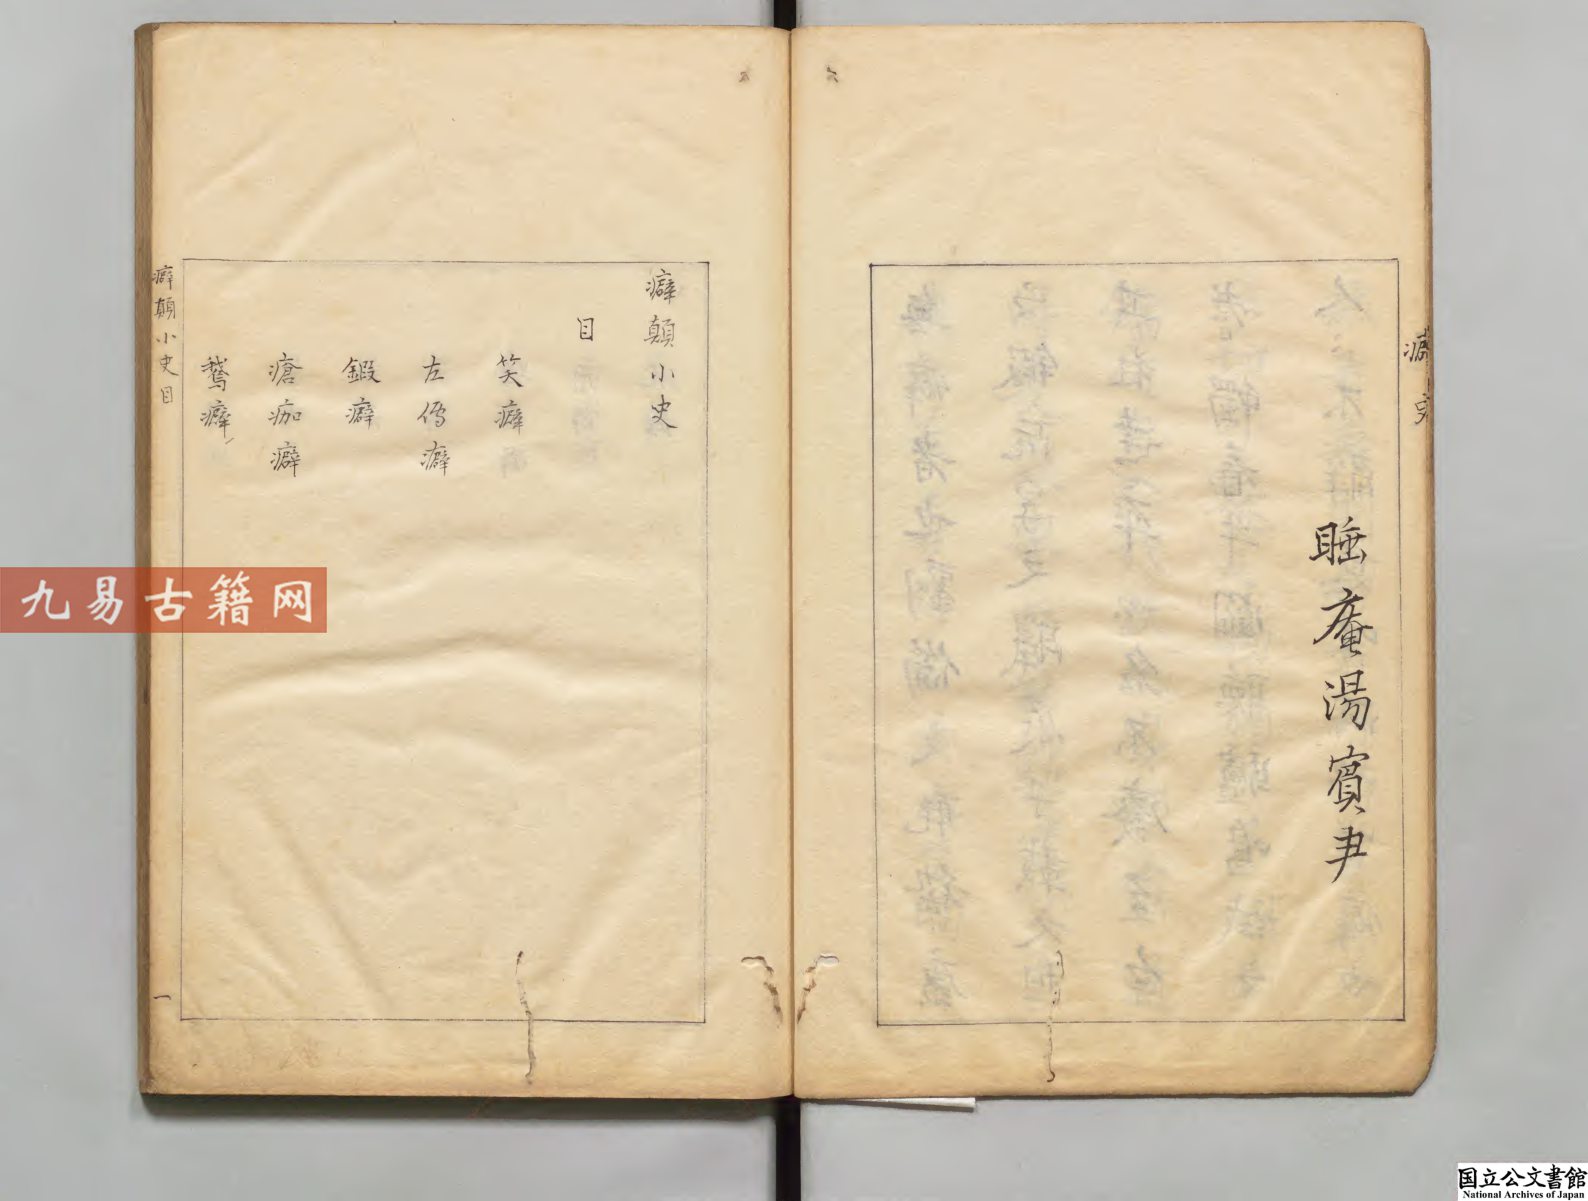 睡庵湯賓尹
癖顛小史
目
笑癖
左傳癖
鍜癖
瘡痂癖
鵞癖
癖顛小史目
一
九易古籍网
国立公文書館
National Archives of Japan